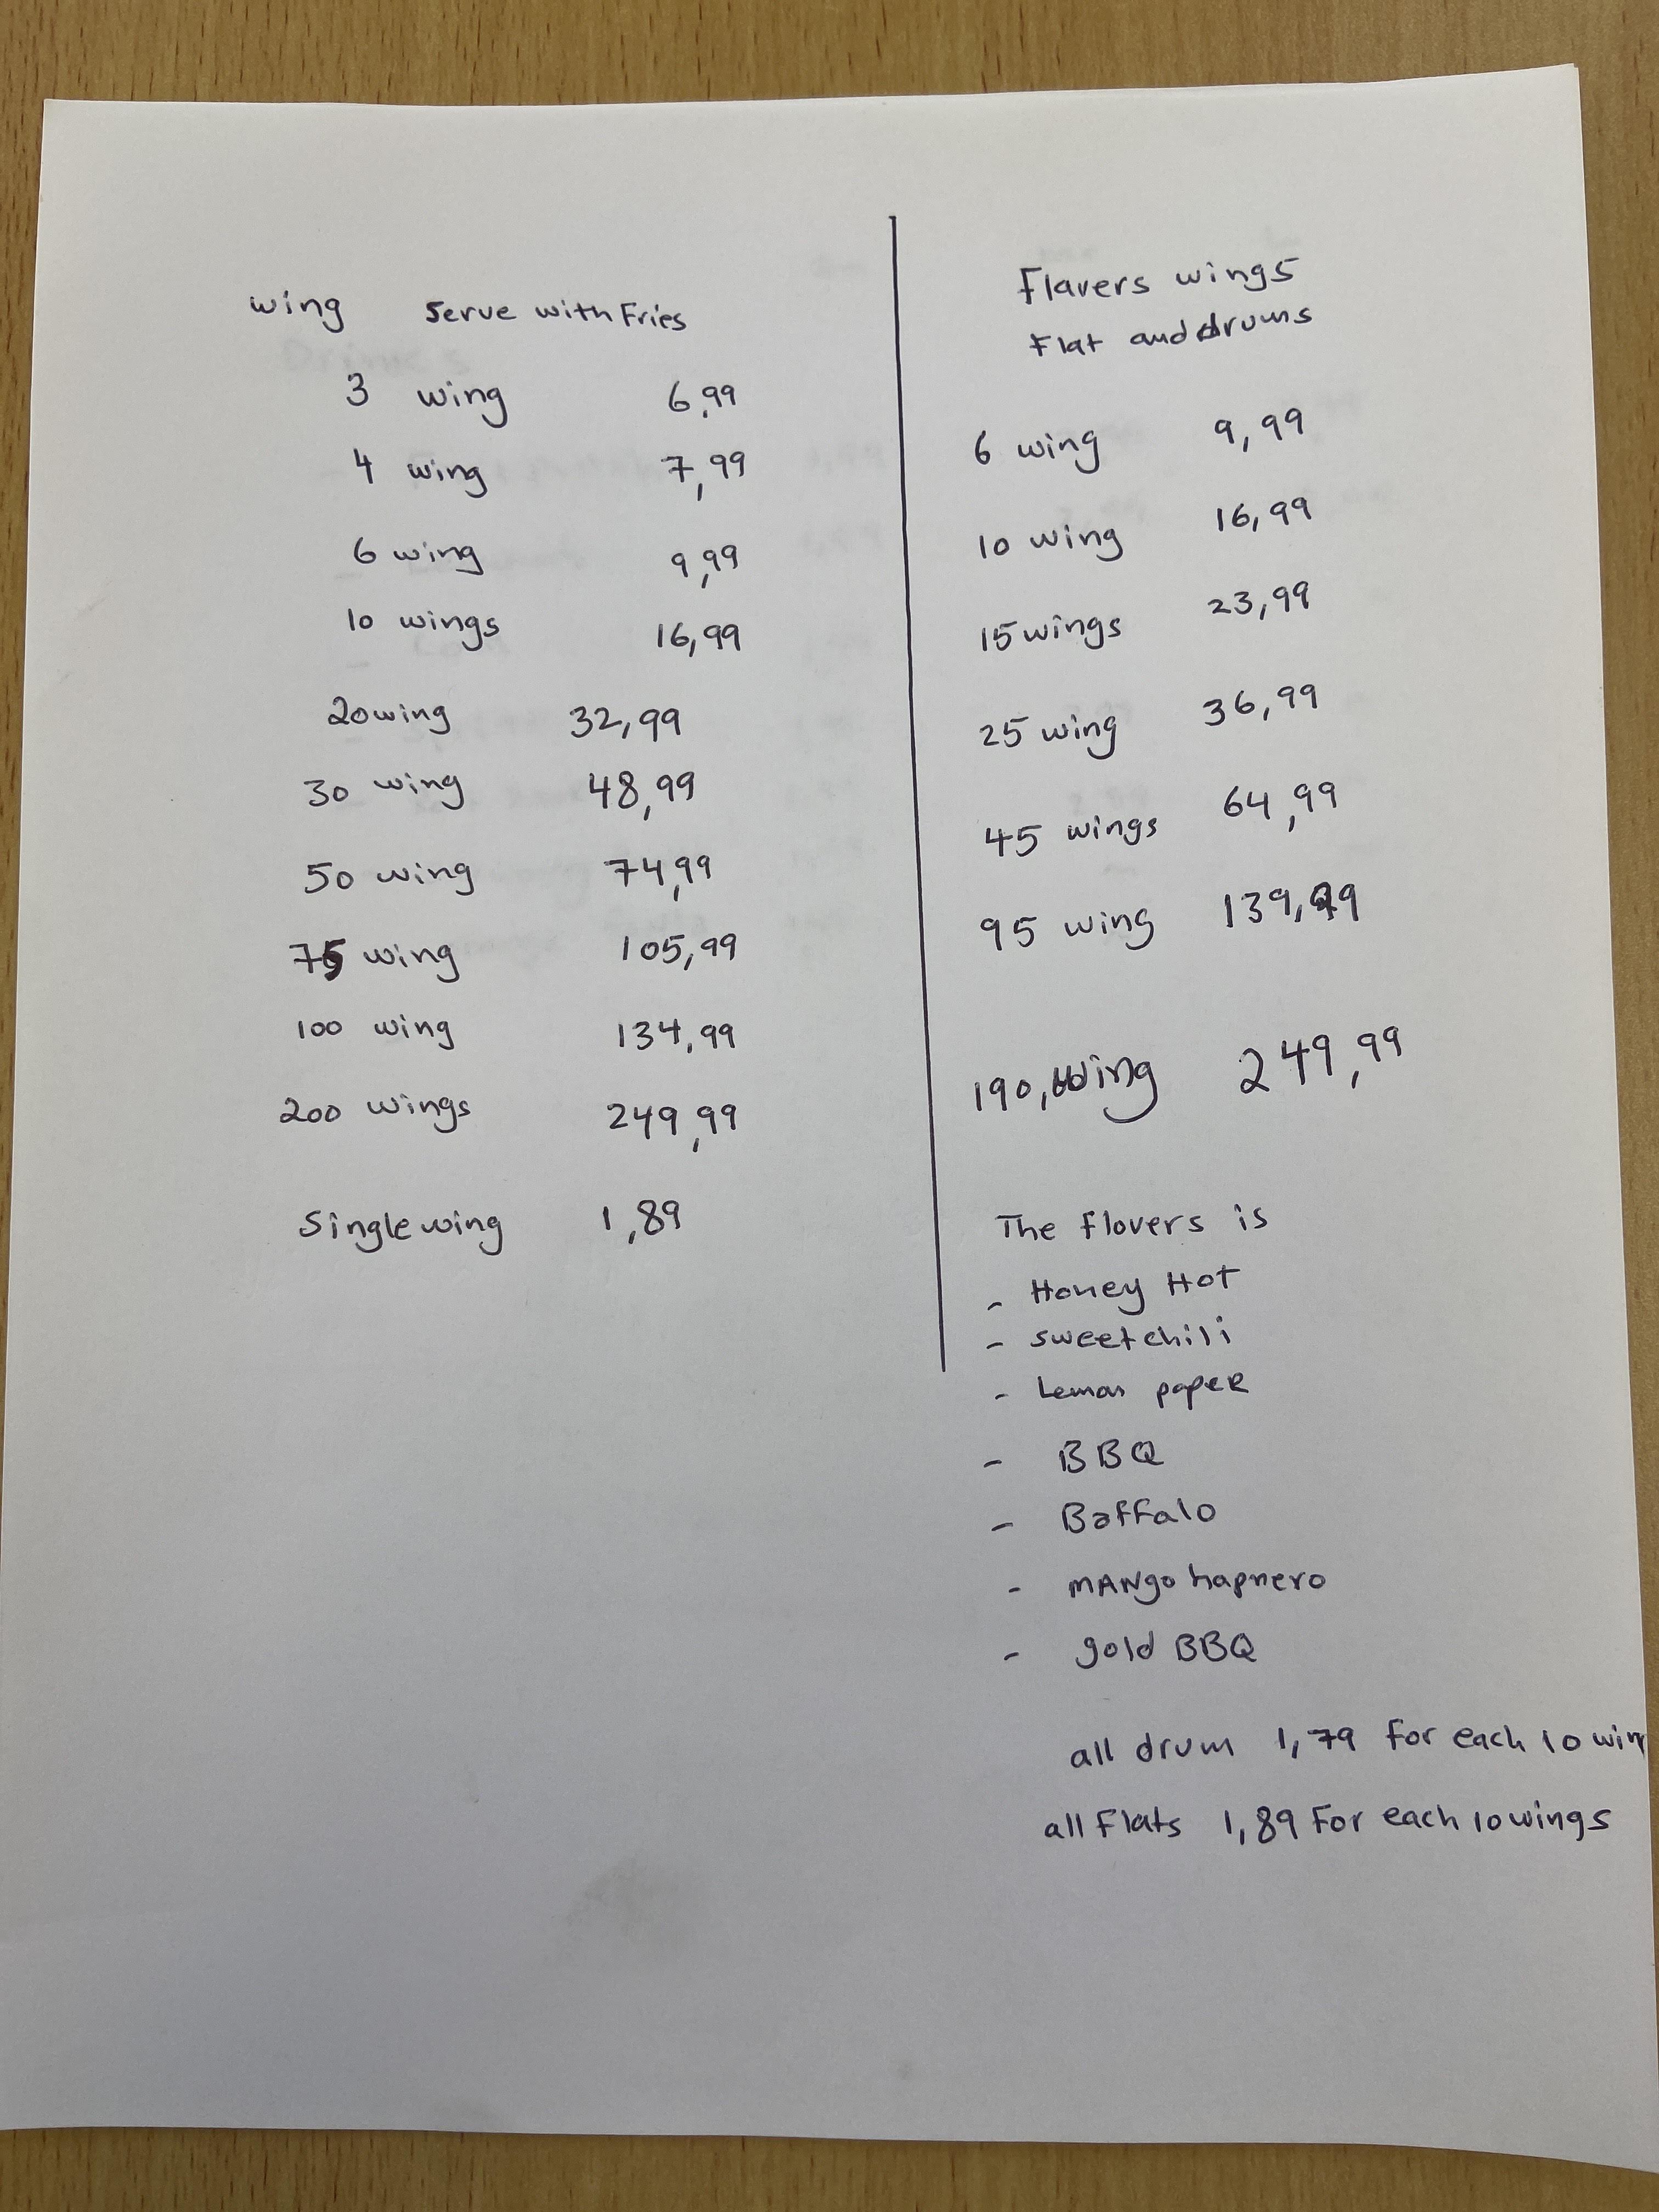 wing Serve with Fries
3 wing 6,99
4 wing 7,99
6 wing 9,99
10 wings 16,99
20wing 32,99
30 wing 48,99
50 wing 74,99
75 wing 105,99
100 wing 134,99
200 wings 249,99
Single wing 1,89
Flavers wings
Flat and drums
6 wing 9,99
10 wing 16,99
15 wings 23,99
25 wing 36,99
45 wings 64,99
95 wing 139,99
190, wing 249,99
The flovers is
- Honey Hot
- sweet chili
- Lemon papeR
- BBQ
- Baffalo
- MANgo hapnero
- gold BBQ
all drum 1,79 for each 10 win
all Flats 1,89 For each 10 wings